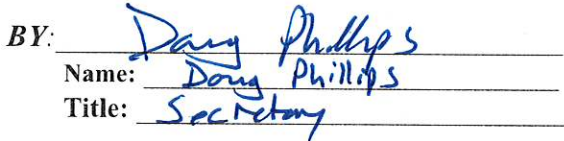 BY: Doug Phillips
Name: Doug Phillips
Title: Secretary